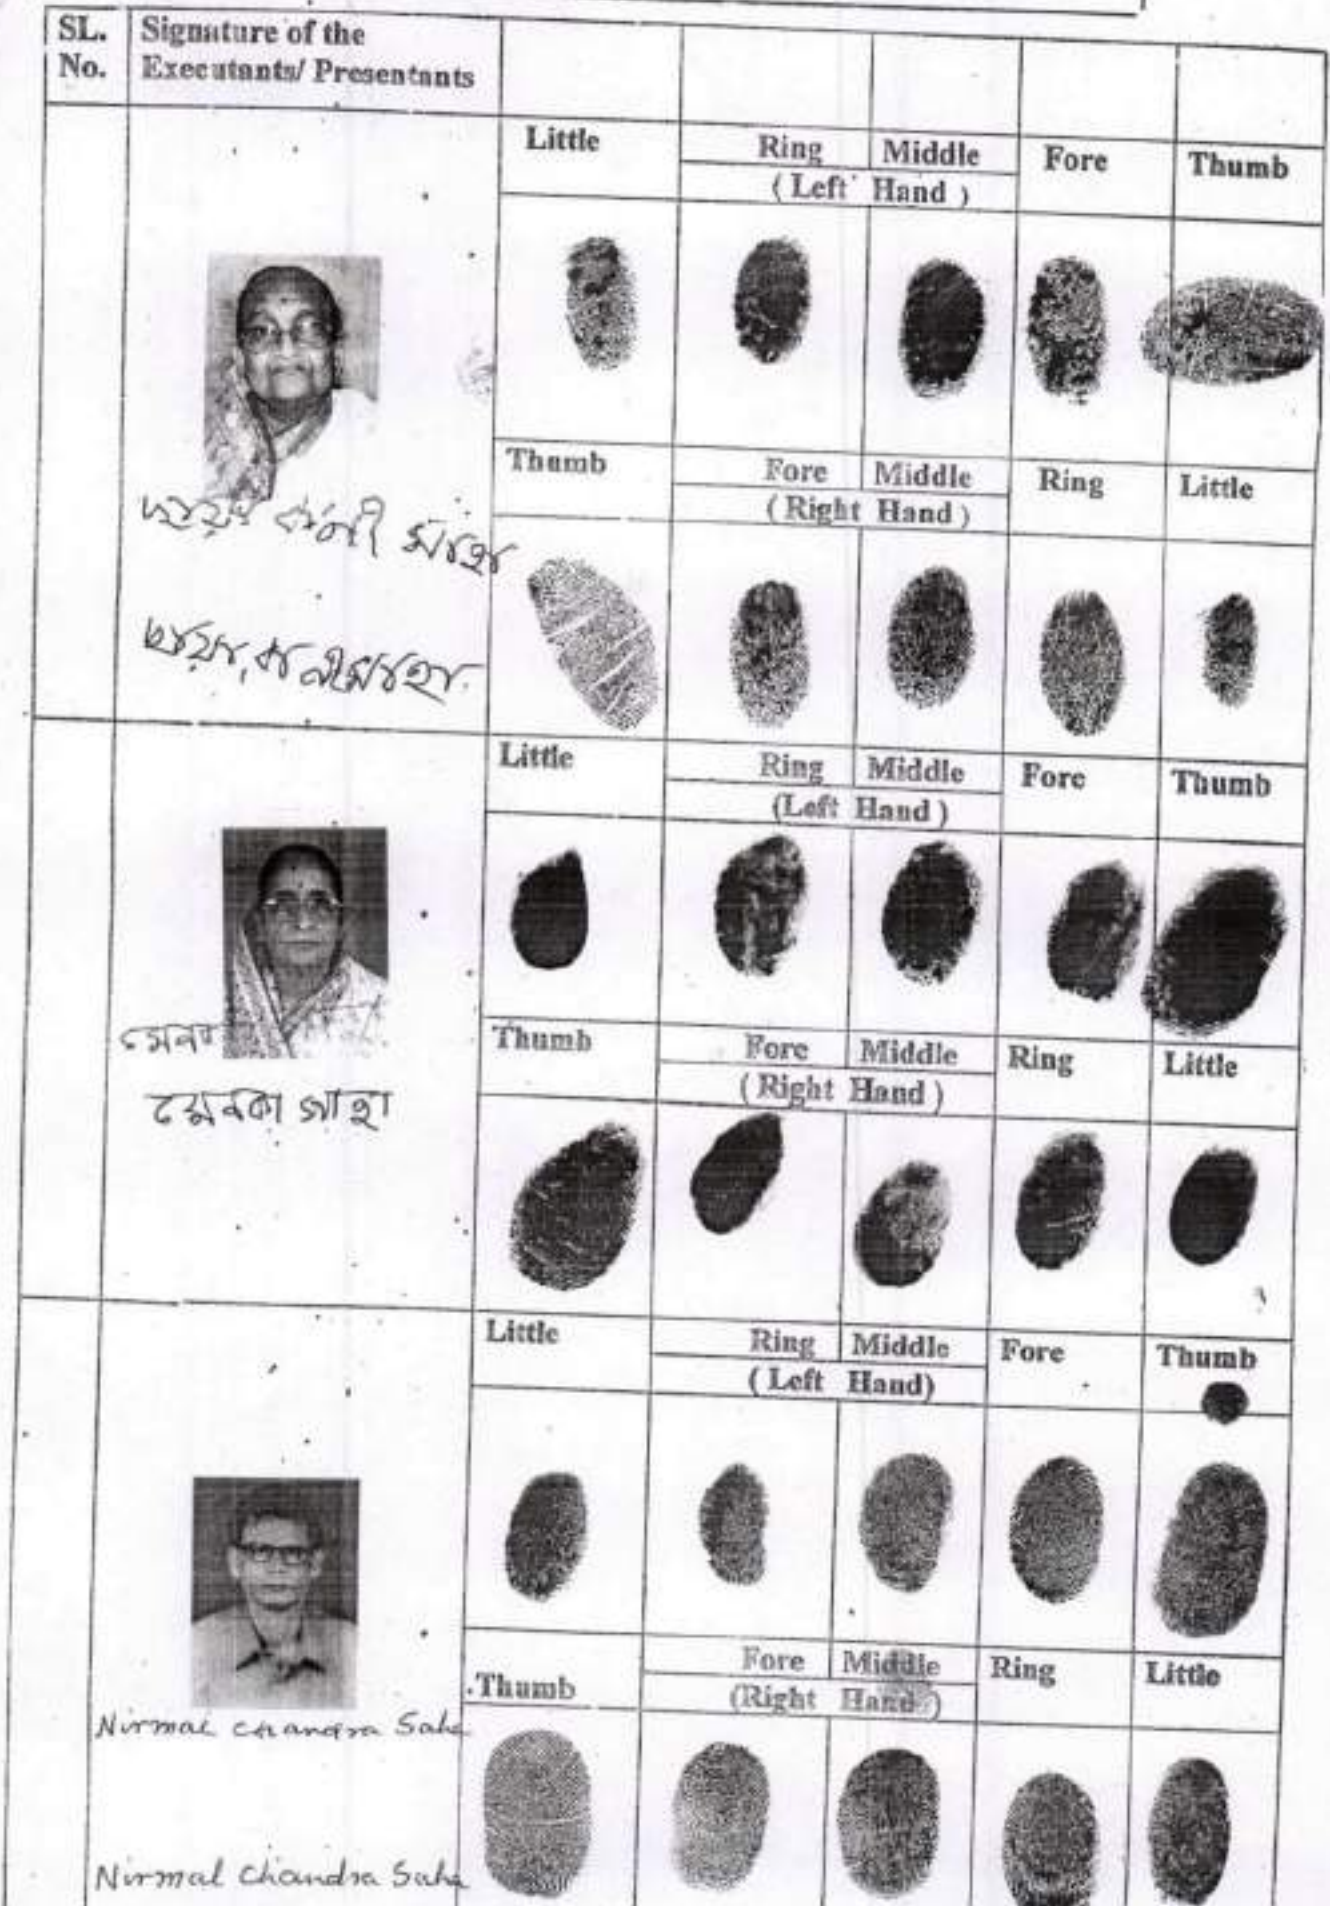 SL. No.
Signature of the Executants/ Presentants
Little Ring Middle Fore Thumb
( Left Hand )
Thumb Fore Middle Ring Little
( Right Hand )
সাহা
সাহা
Little Ring Middle Fore Thumb
(Left Hand )
মেনকা সাহা
Thumb Fore Middle Ring Little
( Right Hand )
Little Ring Middle Fore Thumb
( Left Hand)
Nirmal Chandra Saha
Thumb Fore Middle Ring Little
(Right Hand )
Nirmal Chandra Saha